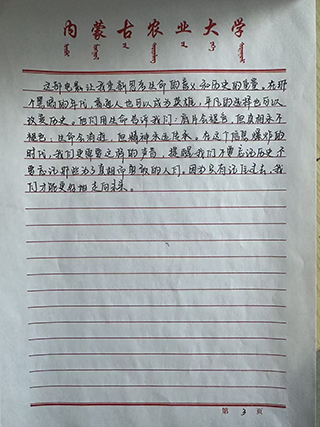 内蒙古农业大学
这部电影让我重新思考生命的意义和历史的重量。在那
个黑暗的年代，普通人也可以成为英雄，平凡的选择也可以
改变历史。他们用生命告诉我们：底片会褪色，但真相永不
褪色；生命会消逝，但精神永远传承。在这个信息爆炸的
时代，我们更需要这样的声音，提醒我们不要忘记历史，不
要忘记那些为了真相而勇敢的人们。因为只有记住过去，我
们才能更好地走向未来。
第 3 页